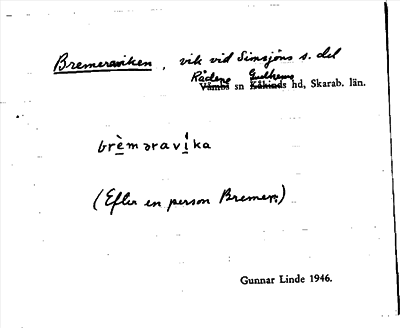 Bremeraviken, vik vid Simsjöns s. del
Rådene Gudhems
Våmbs sn Kåkinds hd, Skarab. län.
brè̱məraví̱ka
(Efter en person Bremer.)
Gunnar Linde 1946.